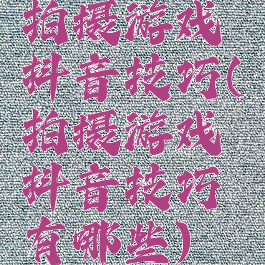 拍摄游戏
抖音技巧(
拍摄游戏
抖音技巧
有哪些)